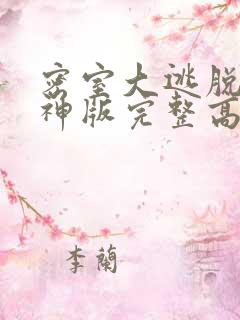 密室大逃脱
神版完整高
李蘭